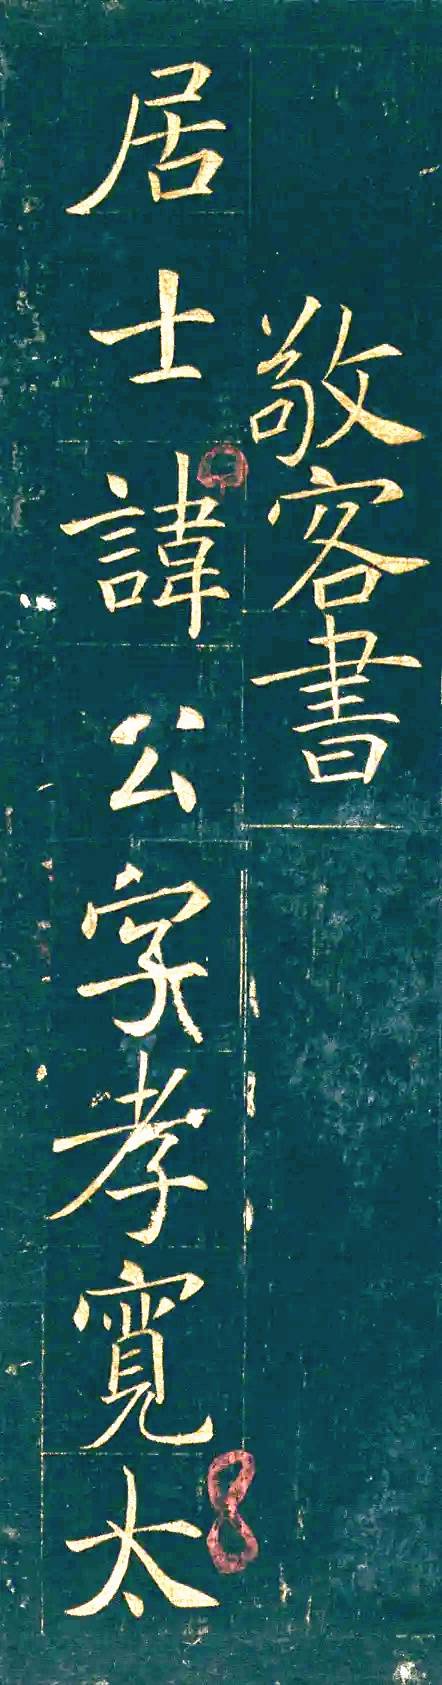 敬客書
居士諱公字孝寬太